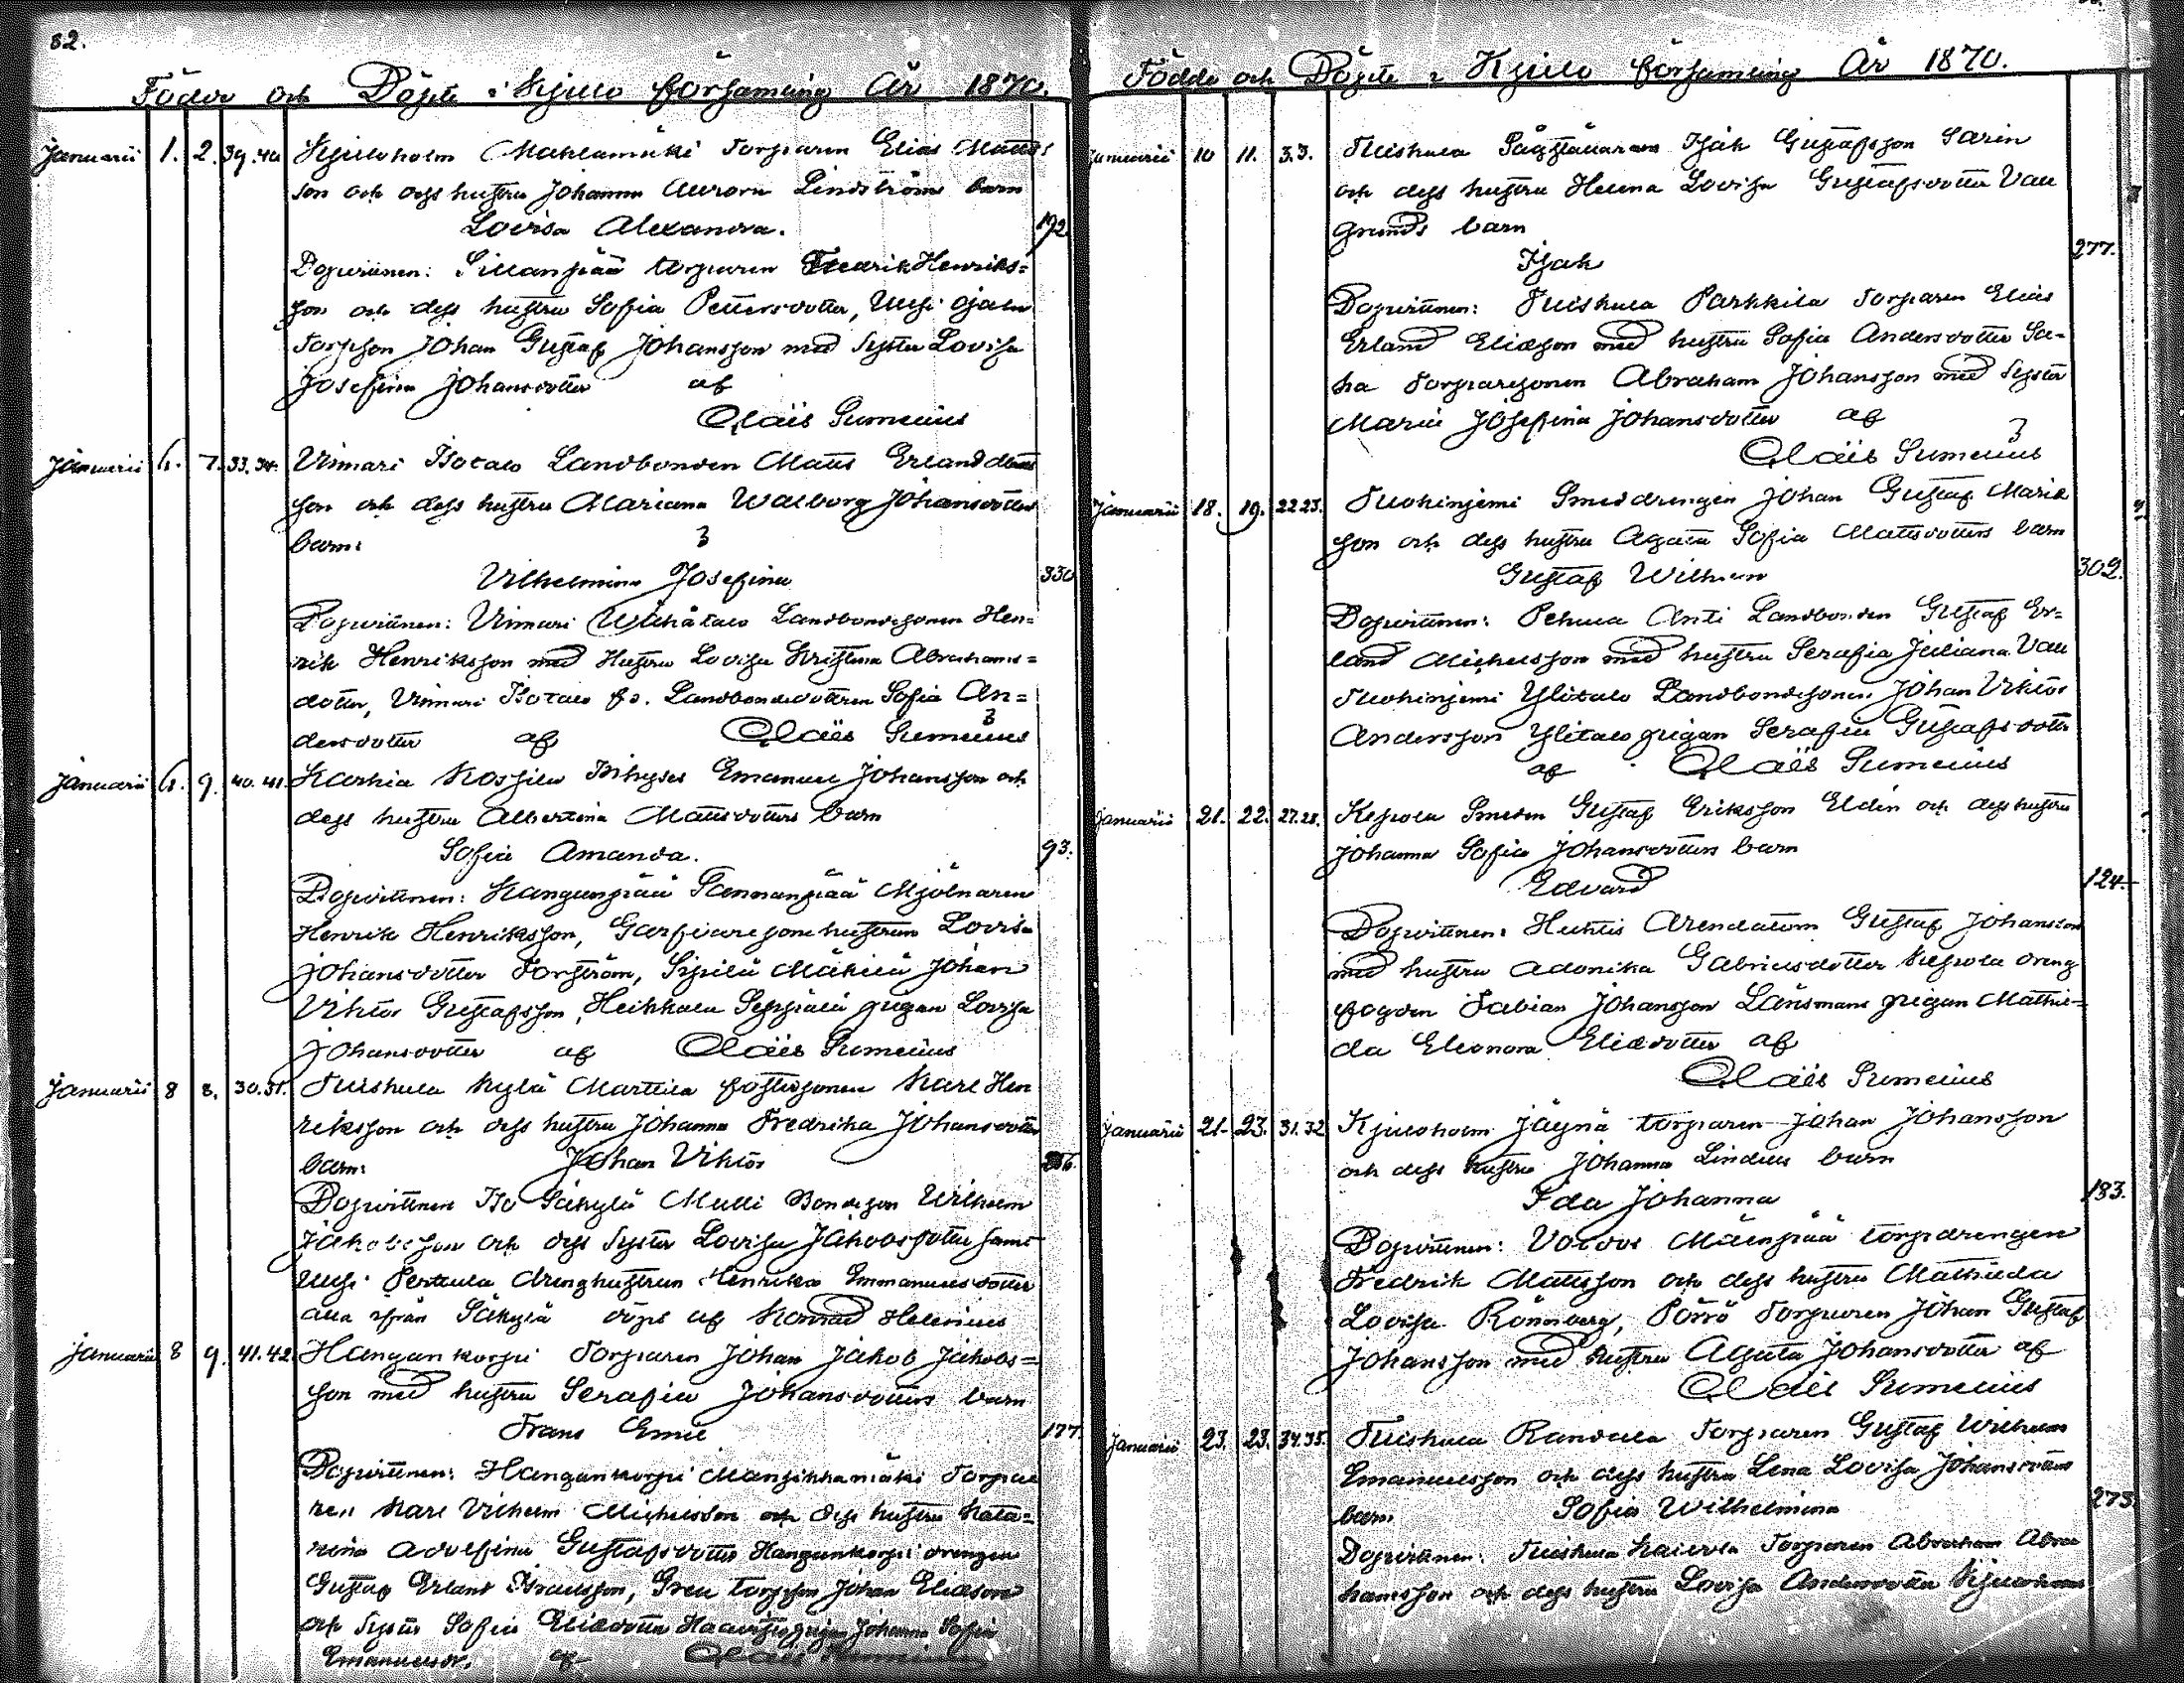 82.
Födde och Döpte i Kjulo församling År 1870.
Januarii 1. 2. 39.40 Kjuloholm Mahlamäki Torparen Elias Matts
son och dess hustru Johanna Aurora Lindströms barn
Lovisa Alexandra. 192
Dopvittnen: Sillanpää torparen Fredrik Henriks=
son och dess hustru Sofia Pettersdotter, Uusi Ojala
Torpson Johan Gustaf Johansson med Syster Lovisa
Josefina Johansdotter af
Claës Sumelius
Januarii 6. 7. 33.34. Vinnari Isotalo Landbonden Matts Erland
son och dess hustru Mariana Walborg Johansdotters
barn:
Vilhelmina Josefina 330
Dopvittnen: Vinnari Vähätalo Landbondesonen Hen=
rik Henriksson med Hustru Lovisa Kristina Abrahams=
dotter, Vinnari Isotalo fd. Landbondedottren Sofia An=
dersdotter af Claës Sumelius
Januarii 6. 9. 40.41. Karhia Kossila Emanuel Johansson och
dess hustru Albertina Mattsdotters barn
Sofia Amanda. 93.
Dopvittnen: Kangunpää Mjölnaren
Henrik Henriksson, hustrun Lovisa
Johansdotter Forström, Sipilä Mäkilä Johan
Viktor Gustafsson, Heikkala Seppälä pigan Lovisa
Johansdotter af Claës Sumelius
Januarii 8 8. 30.31. Tuiskula Kylä Marttila fostersonen Karl Hen
riksson och dess hustru Johanna Fredrika Johansdotters
barn: Johan Viktor
Dopvittnen Iso Säkylä Mulli Bondeson Wilhelm
Jakobsson och dess Syster Lovisa Jakobsdotter samt
Uusi Pertula drenghustrun Henrika Emanuelsdotter
alla ifrån Säkylä döpt af Konrad Helenius
Januarii 8 9. 41.42 Hangankorpi Torparen Johan Jakob Jakobs=
son med hustru Serafia Johansdotters barn
Frans Emil 177.
Dopvittnen: Hangankorpi Mansikkamäki Torpa
ren Karl Vilhelm Michelsson och dess hustru Kata=
rina Adolfina Gustafsdotter Hangankorpi drengen
Gustaf Erland Israelsson, torpson Johan Eliasson
och Syster Sofia Eliedotter pigan Johanna Sofia
Emanuelsdr. af Claës Sumelius
Födde och Döpte i Kjulo församling År 1870.
Januarii 10 11. 33. Tuiskula Isak Gustafsson Sarin
och dess hustru Helena Lovisa Gustafsdotter Val
grunds barn
Isak 277.
Dopvittnen: Tuiskula Parkkila Torparen Elias
Erland Eliasson med hustru Sofia Andersdotter Sa-
ha Torparesonen Abraham Johansson med Syster
Maria Josefina Johansdotter af
Claës Sumelius
Januarii 18. 19. 22.23. Tuohiniemi Smeddrengen Johan Gustaf Marie
son och dess hustru Agata Sofia Mattsdotters barn
Gustaf Wilhelm 302.
Dopvittnen: Pehula Anti Landbonden Gustaf Er=
land Michelsson med hustru Serafia Juliana Vall
Tuohiniemi Ylitalo Landbondesonen Johan Viktor
Andersson Ylitalo pigan Serafia Gustafsdotter
af Claës Sumelius
Januarii 21. 22. 27.28. Kepola Smeden Gustaf Eriksson Eldin och dess hustru
Johanna Sofia Johansdotters barn
Edvard 124.
Dopvittnen: Huhtis Arendatorn Gustaf Johansson
med hustru Adonika Gabrielsdotter Kepola dreng
fogden Fabian Johansson Länsmans pigan Mathil=
da Eleonora Eliedotter af
Claës Sumelius
Januarii 21. 23. 31.32 Kjuloholm Jäynä torparen Johan Johansson
och dess hustru Johanna Lindells barn
Ida Johanna 183.
Dopvittnen: Mäenpää torpdrengen
Fredrik Mattsson och dess hustru Mathilda
Lovisa Rönnberg, Pörrö Torparen Johan Gustaf
Johansson med hustru Agata Johansdotter af
Claës Sumelius
Januarii 23. 23. 34.35. Tuiskula Randala Torparen Gustaf Wilhelm
Emanuelsson och dess hustru Lena Lovisa Johansdotters
barn Sofia Wilhelmina 273
Dopvittnen: Tuiskula Torparen Abraham Abra
hamsson och dess hustru Lovisa Andersdotter Kjuloholms